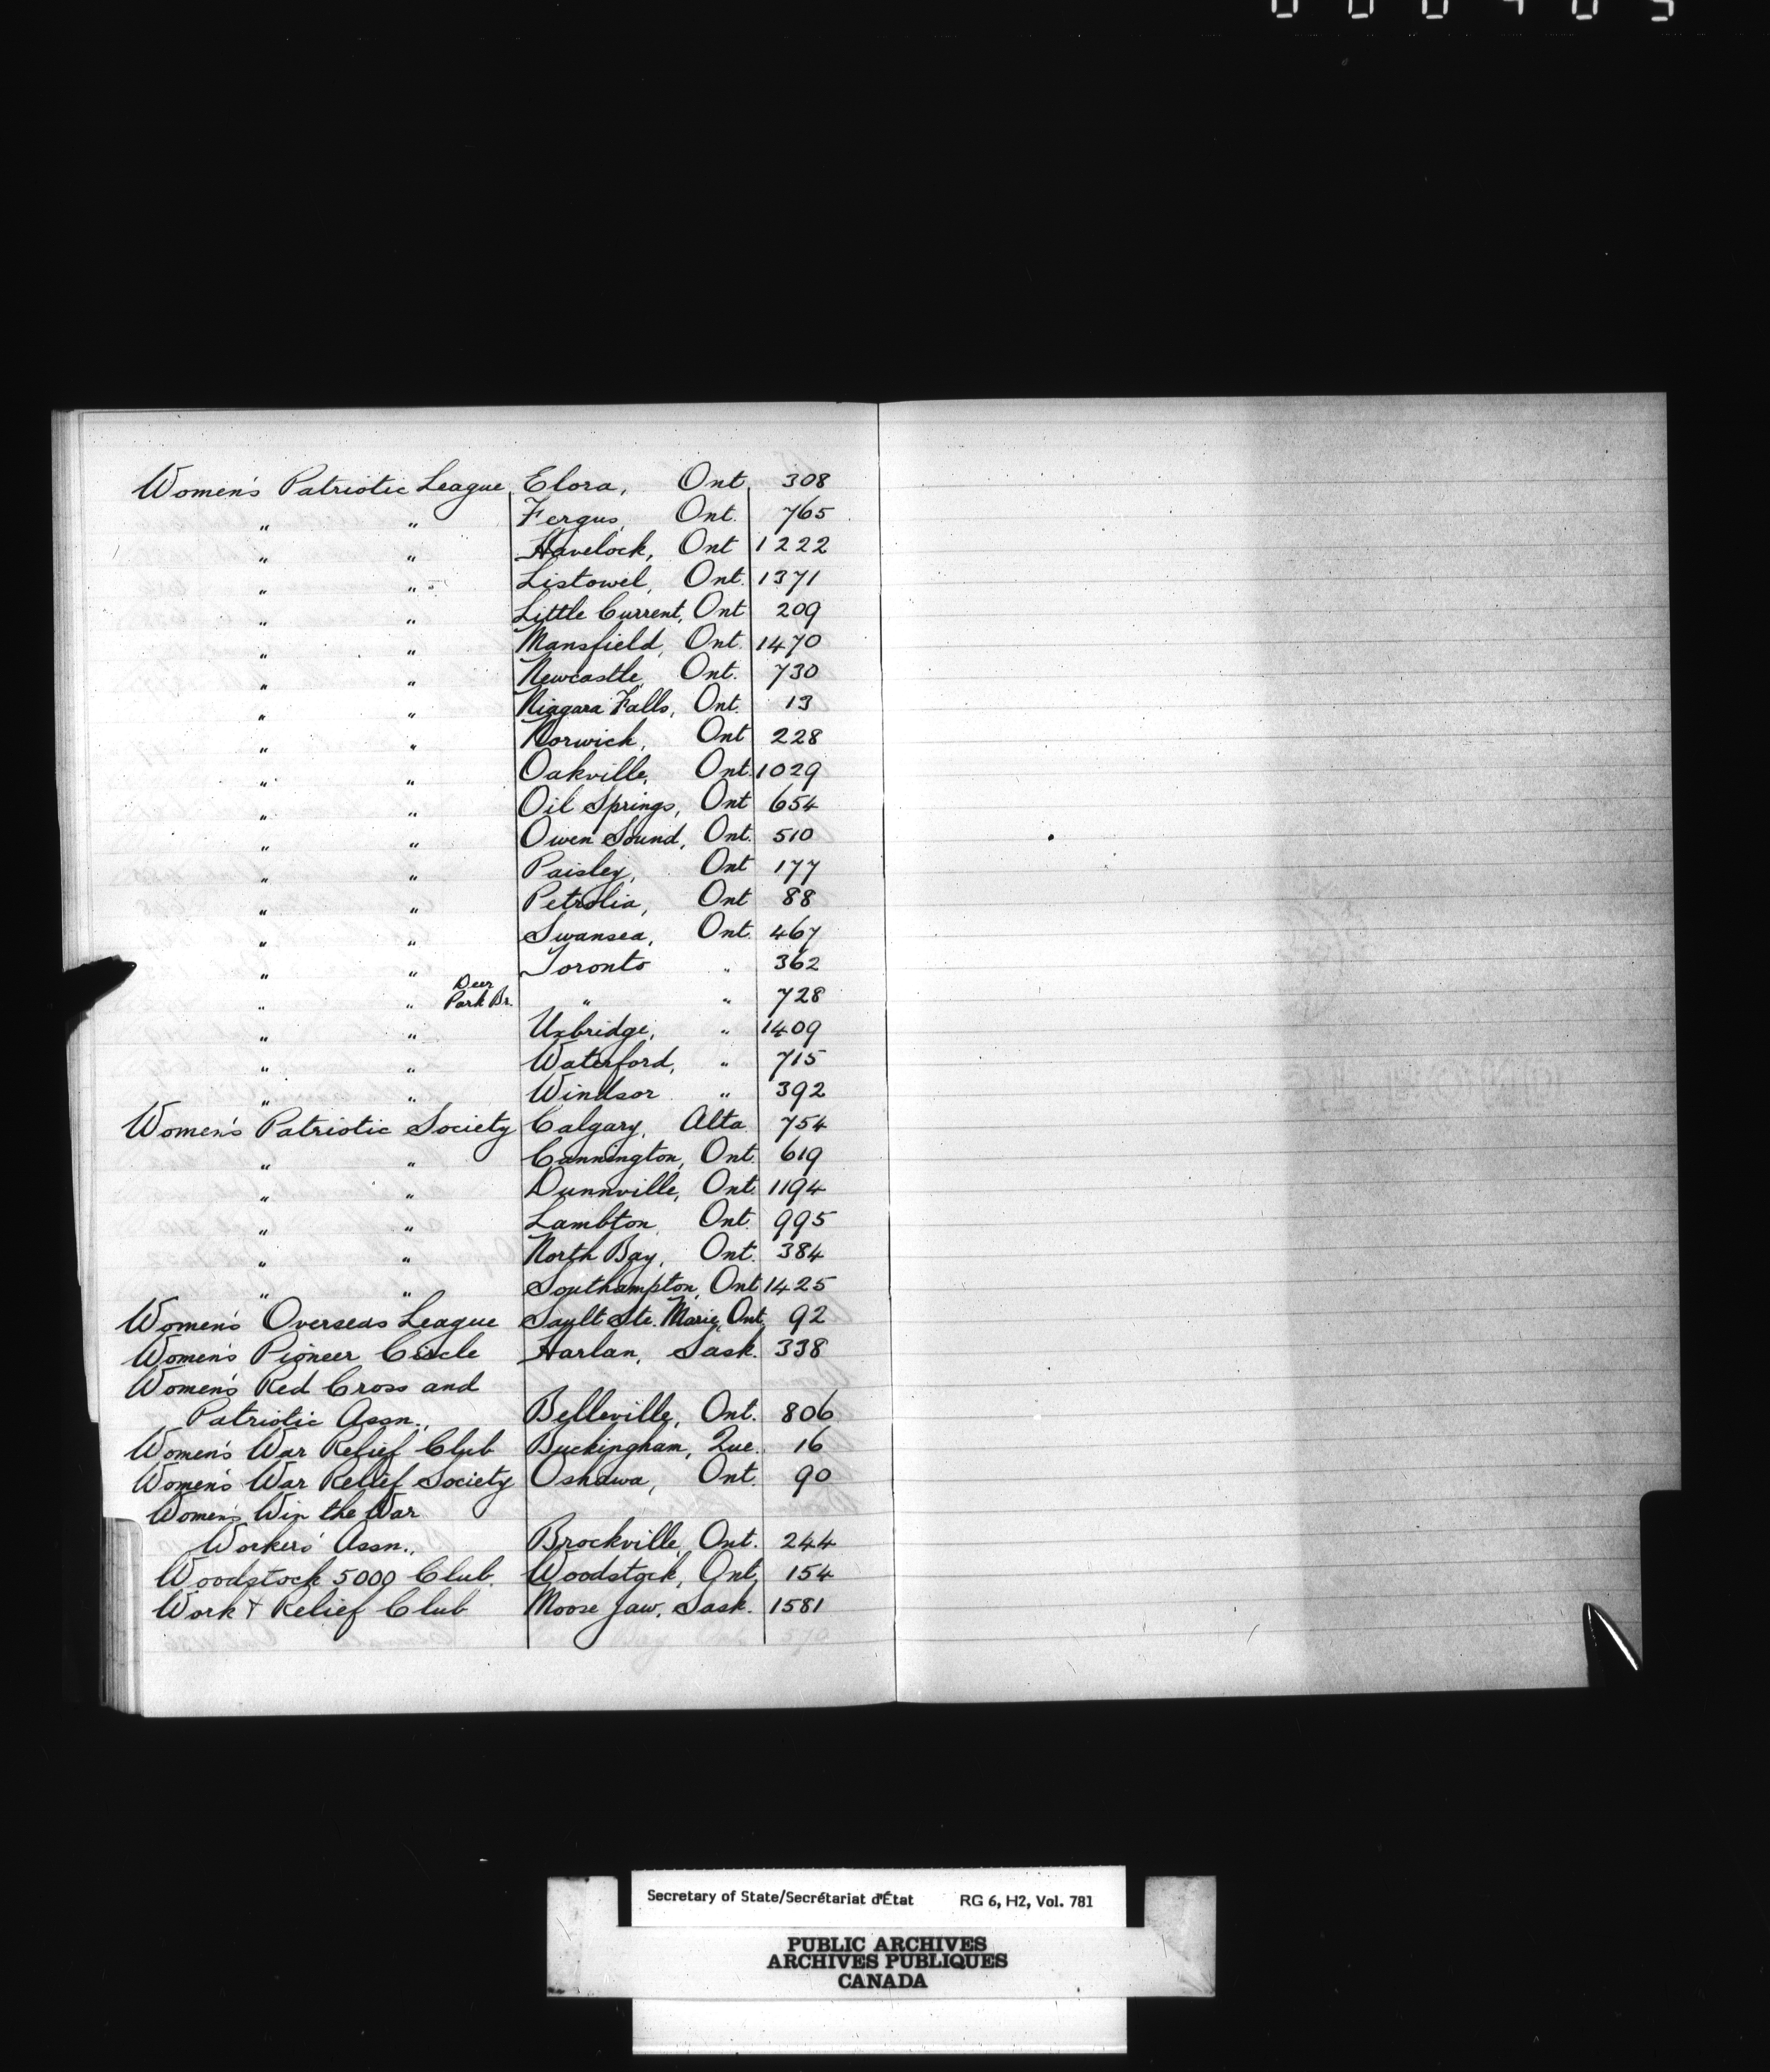 Women's Patriotic League Elora, Ont 308
" " Fergus, Ont. 765
" " Havelock, Ont 1222
" " Listowel, Ont. 1371
" " Little Current, Ont 209
" " Mansfield, Ont. 1470
" " Newcastle, Ont. 730
" " Niagara Falls, Ont. 13
" " Norwich, Ont 228
" " Oakville, Ont. 1029
" " Oil Springs, Ont 654
" " Owen Sound, Ont. 510
" " Paisley, Ont 177
" " Petrolia, Ont 88
" " Swansea, Ont. 467
" " Toronto " 362
" " Deer Park Br. " " 728
" " Uxbridge, " 1409
" " Waterford, " 715
" " Windsor " 392
Women's Patriotic Society Calgary, Alta 754
" " Cannington, Ont. 619
" " Dunnville, Ont. 1194
" " Lambton Ont. 995
" " North Bay, Ont. 384
" " Southampton, Ont 1425
Women's Overseas League Sault Ste. Marie, Ont. 92
Women's Pioneer Circle Harlan, Sask. 338
Women's Red Cross and
Patriotic Assn., Belleville, Ont. 806
Women's War Relief Club Buckingham, Que. 16
Women's War Relief Society Oshawa, Ont. 90
Women's Win the War
Workers' Assn., Brockville, Ont. 244
Woodstock 5000 Club. Woodstock, Ont. 154
Work & Relief Club Moose Jaw, Sask. 1581
Secretary of State/Secrétariat d'État RG 6, H2, Vol. 781
PUBLIC ARCHIVES
ARCHIVES PUBLIQUES
CANADA